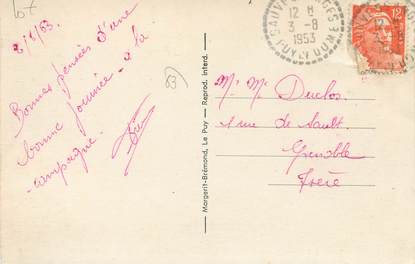 107
2/8/53
Bonnes pensées d'une
bonne journée à la
campagne.
63
Margerit-Brémond, Le Puy — Reprod. interd.
SAUVE GES
12 H
3 - 8
1953
PUY DE DOME
12
Mr Me Duclos
1 rue de Sault
Grenoble
Isère